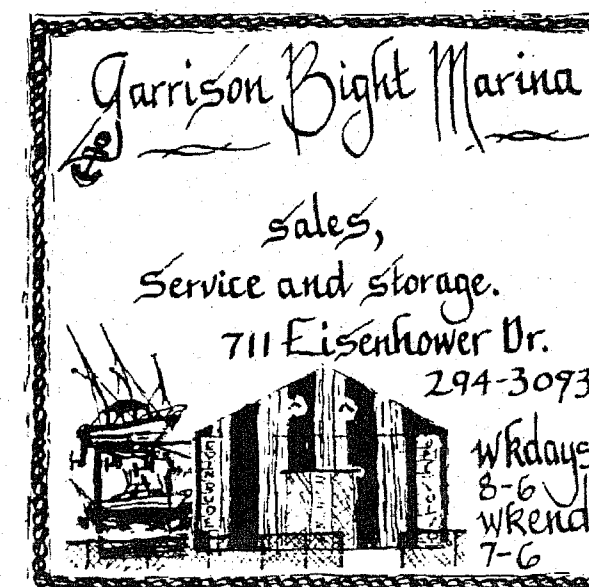 Garrison Bight Marina
sales,
Service and storage.
711 Eisenhower Dr.
294-3093
wkdays
8-6
wkend
7-6